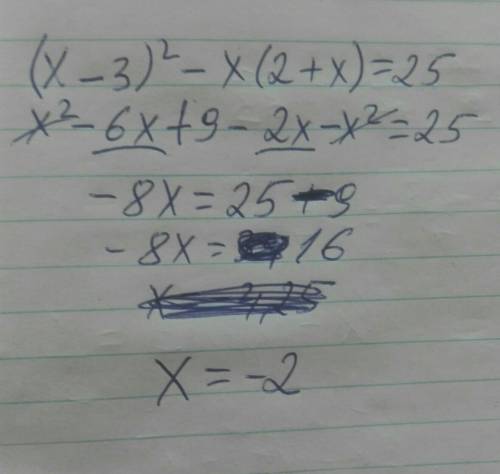 (x - 3)² - x(2 + x) = 25
x² - 6x + 9 - 2x - x² = 25
-8x = 25 - 9
-8x = 16
x = -2